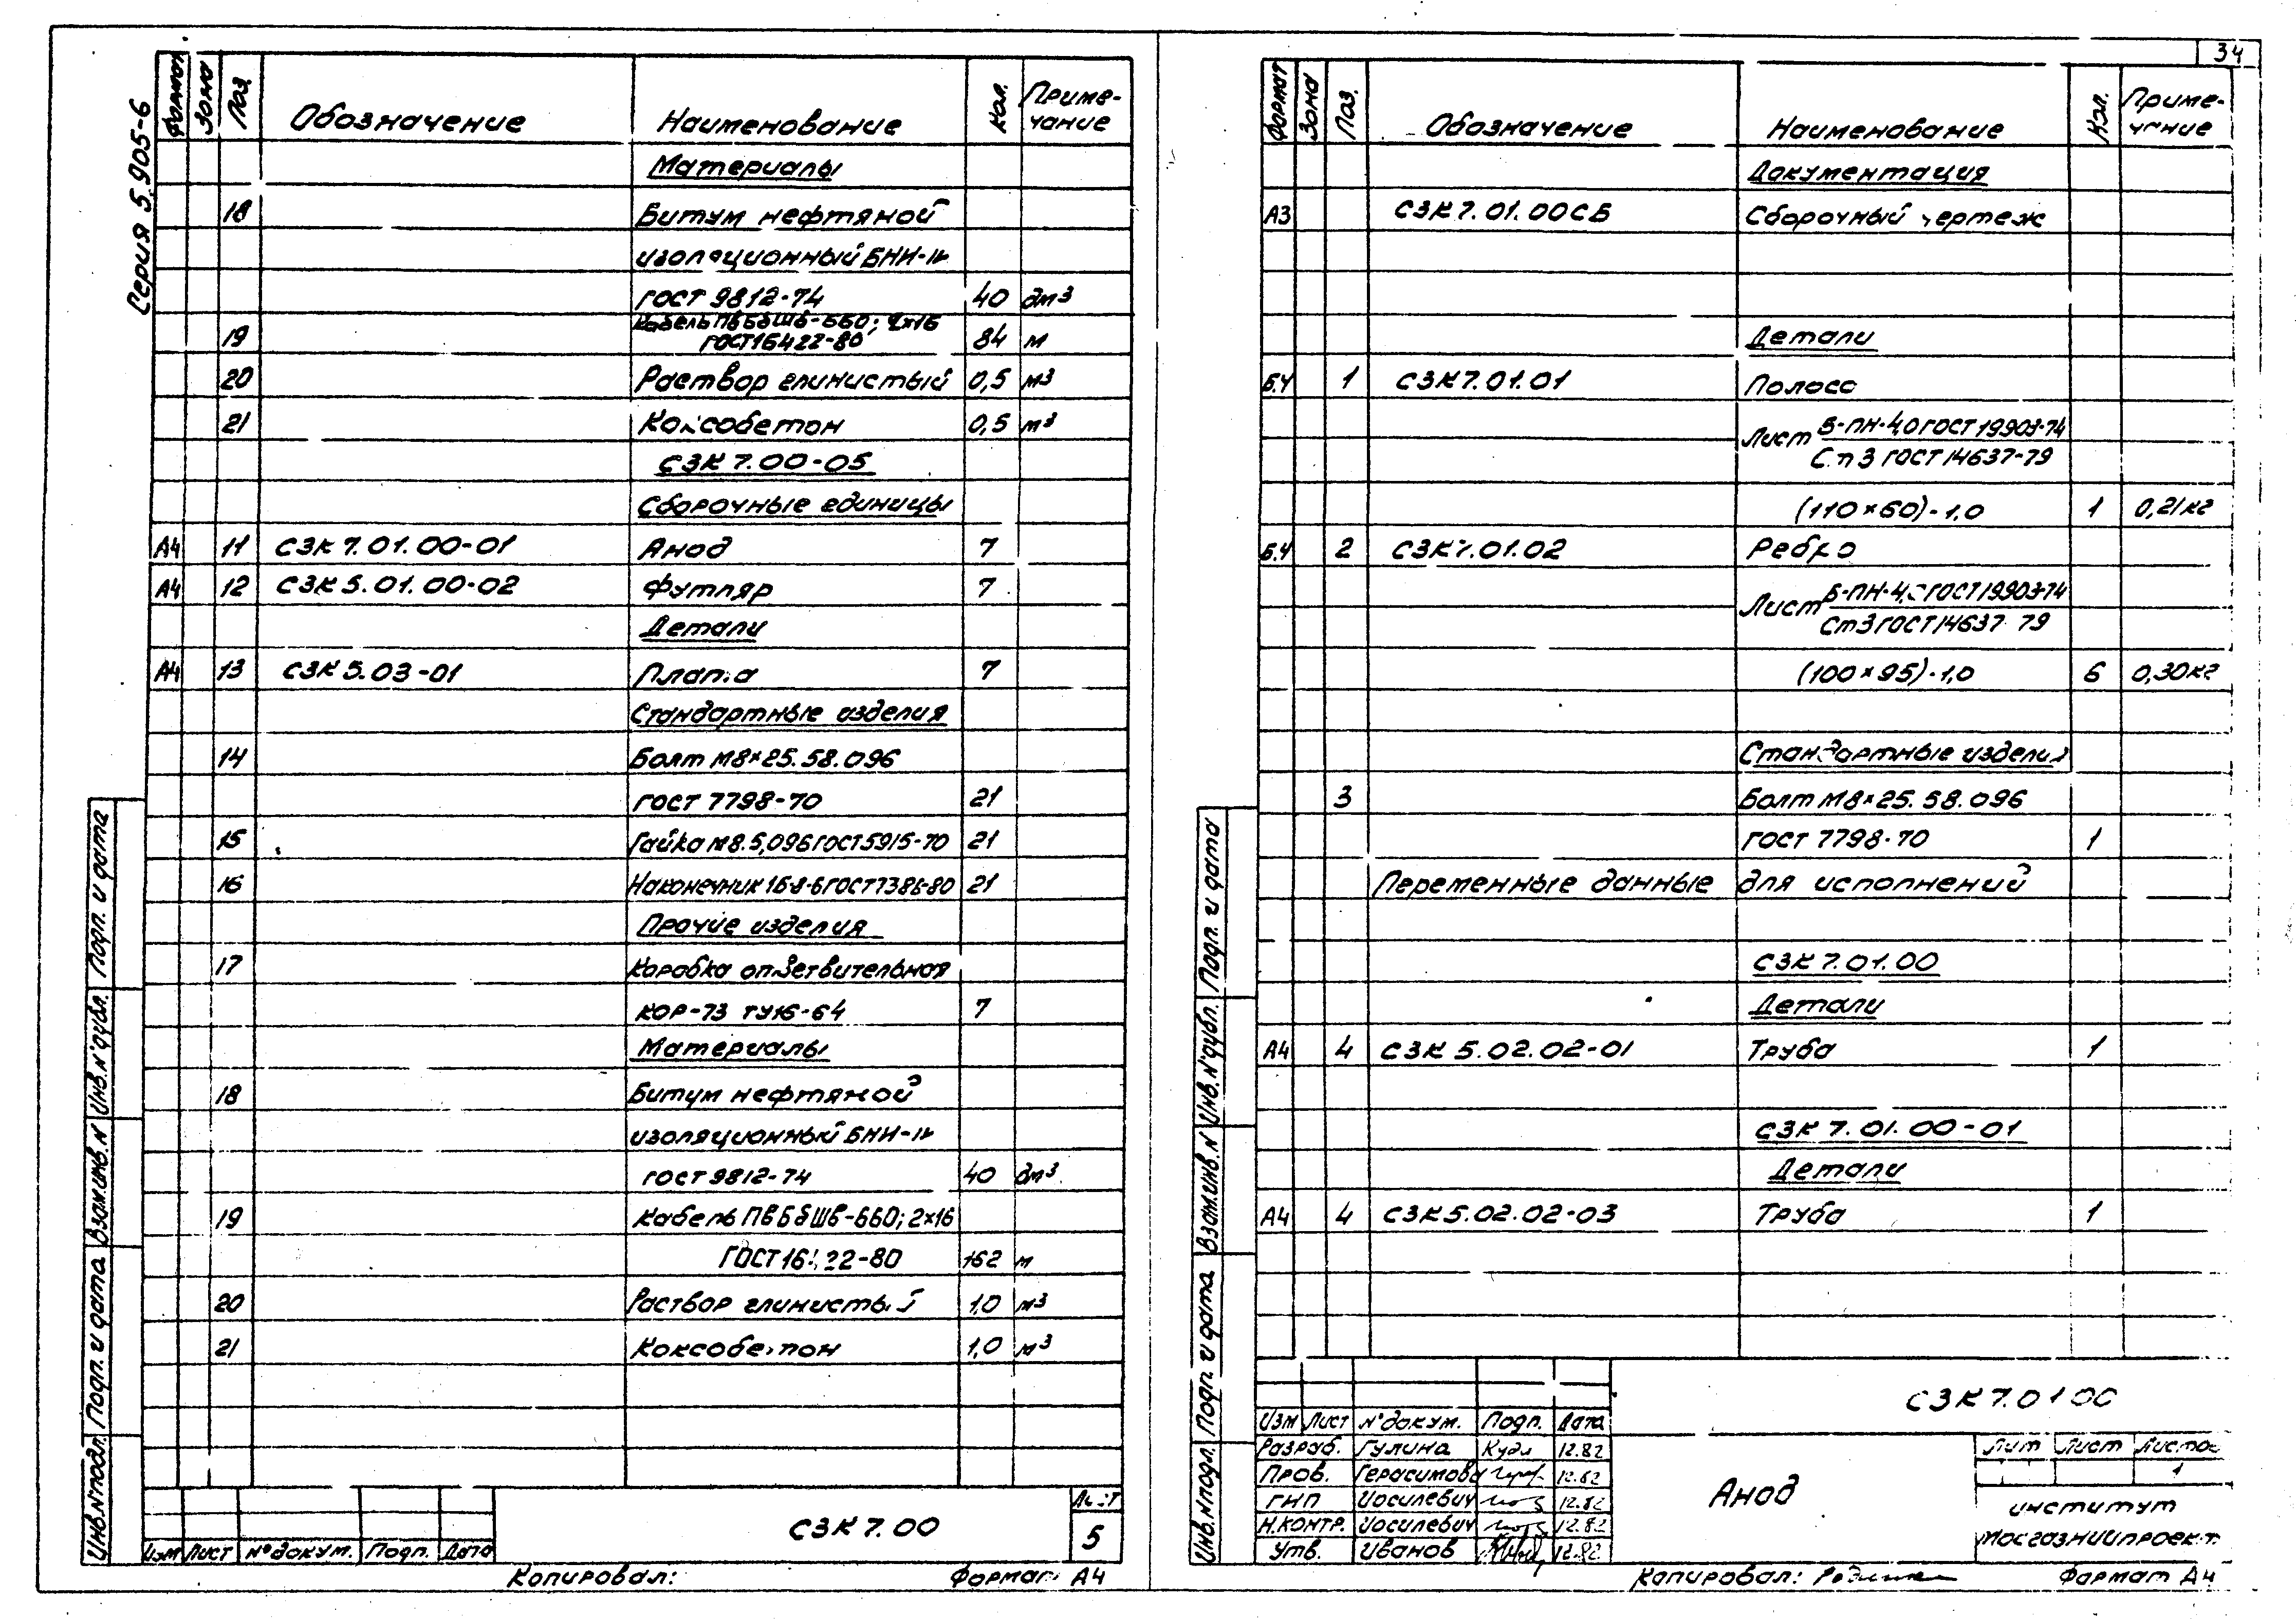 34
Серия 5.905-6
Формат Зона Поз. Обозначение Наименование Кол. Приме-
чание
Материалы
18 Битум нефтяной
изоляционный БНИ-IV
ГОСТ 9812-74 40 дм3
19 Кабель ПвБбШв-660; 2×16
ГОСТ 16422-80 84 м
20 Раствор глинистый 0,5 м3
21 Коксобетон 0,5 м3
СЗК 7.00-05
Сборочные единицы
А4 11 СЗК 7.01.00-01 Анод 7
А4 12 СЗК 5.01.00-02 Футляр 7
Детали
А4 13 СЗК 5.03-01 7
Стандартные изделия
14 Болт М8×25.58.096
ГОСТ 7798-70 21
15 Гайка М8.5,096 ГОСТ 5915-70 21
16 Наконечник 16-8-6 ГОСТ 7386-80 21
Прочие изделия
17 Коробка ответвительная
КОР-73 ТУ16-64 7
Материалы
18 Битум нефтяной
изоляционный БНИ-IV
ГОСТ 9812-74 40 дм3
19 Кабель ПвБбШв-660; 2×16
ГОСТ 22-80 162 м
20 Раствор глинистый 1,0 м3
21 Коксобетон 1,0 м3
Инв.N подл. Подп. и дата Взам.инв.N Инв.N°дубл. Подп. и дата
Изм Лист N°докум. Подп. Дата
СЗК 7.00
Лист
5
Копировал: Формат А4
Формат Зона Поз. Обозначение Наименование Кол. Приме-
чание
Документация
А3 СЗК 7.01.00СБ Сборочный чертеж
Детали
Б.Ч 1 СЗК 7.01.01 Полоса
Лист Б-ПН-4,0 ГОСТ 19903-74
Ст 3 ГОСТ 14637-79
(110×60)-1,0 1 0,21кг
Б.Ч 2 СЗК 7.01.02 Ребро
Лист Б-ПН-4,0 ГОСТ 19903-74
Ст3 ГОСТ 14637 79
(100×95)-1,0 6 0,30кг
Стандартные изделия
3 Болт М8×25.58.096
ГОСТ 7798-70 1
Переменные данные для исполнений
СЗК 7.01.00
Детали
А4 4 СЗК 5.02.02-01 Труба 1
СЗК 7.01.00-01
Детали
А4 4 СЗК 5.02.02-03 Труба 1
Инв.N подл. Подп. и дата Взам.инв.N Инв.N°дубл. Подп. и дата
СЗК 7.01 00
Изм Лист N°докум. Подп. Дата
Разраб. Гулина 12.82
Пров. Герасимова 12.82
ГИП Иосилевич 12.82
Н.контр. Иосилевич 12.82
Утв. Иванов 12.82
Анод
Лит Лист Листов
1
институт
Мосгазниипроект
Копировал: Формат А4